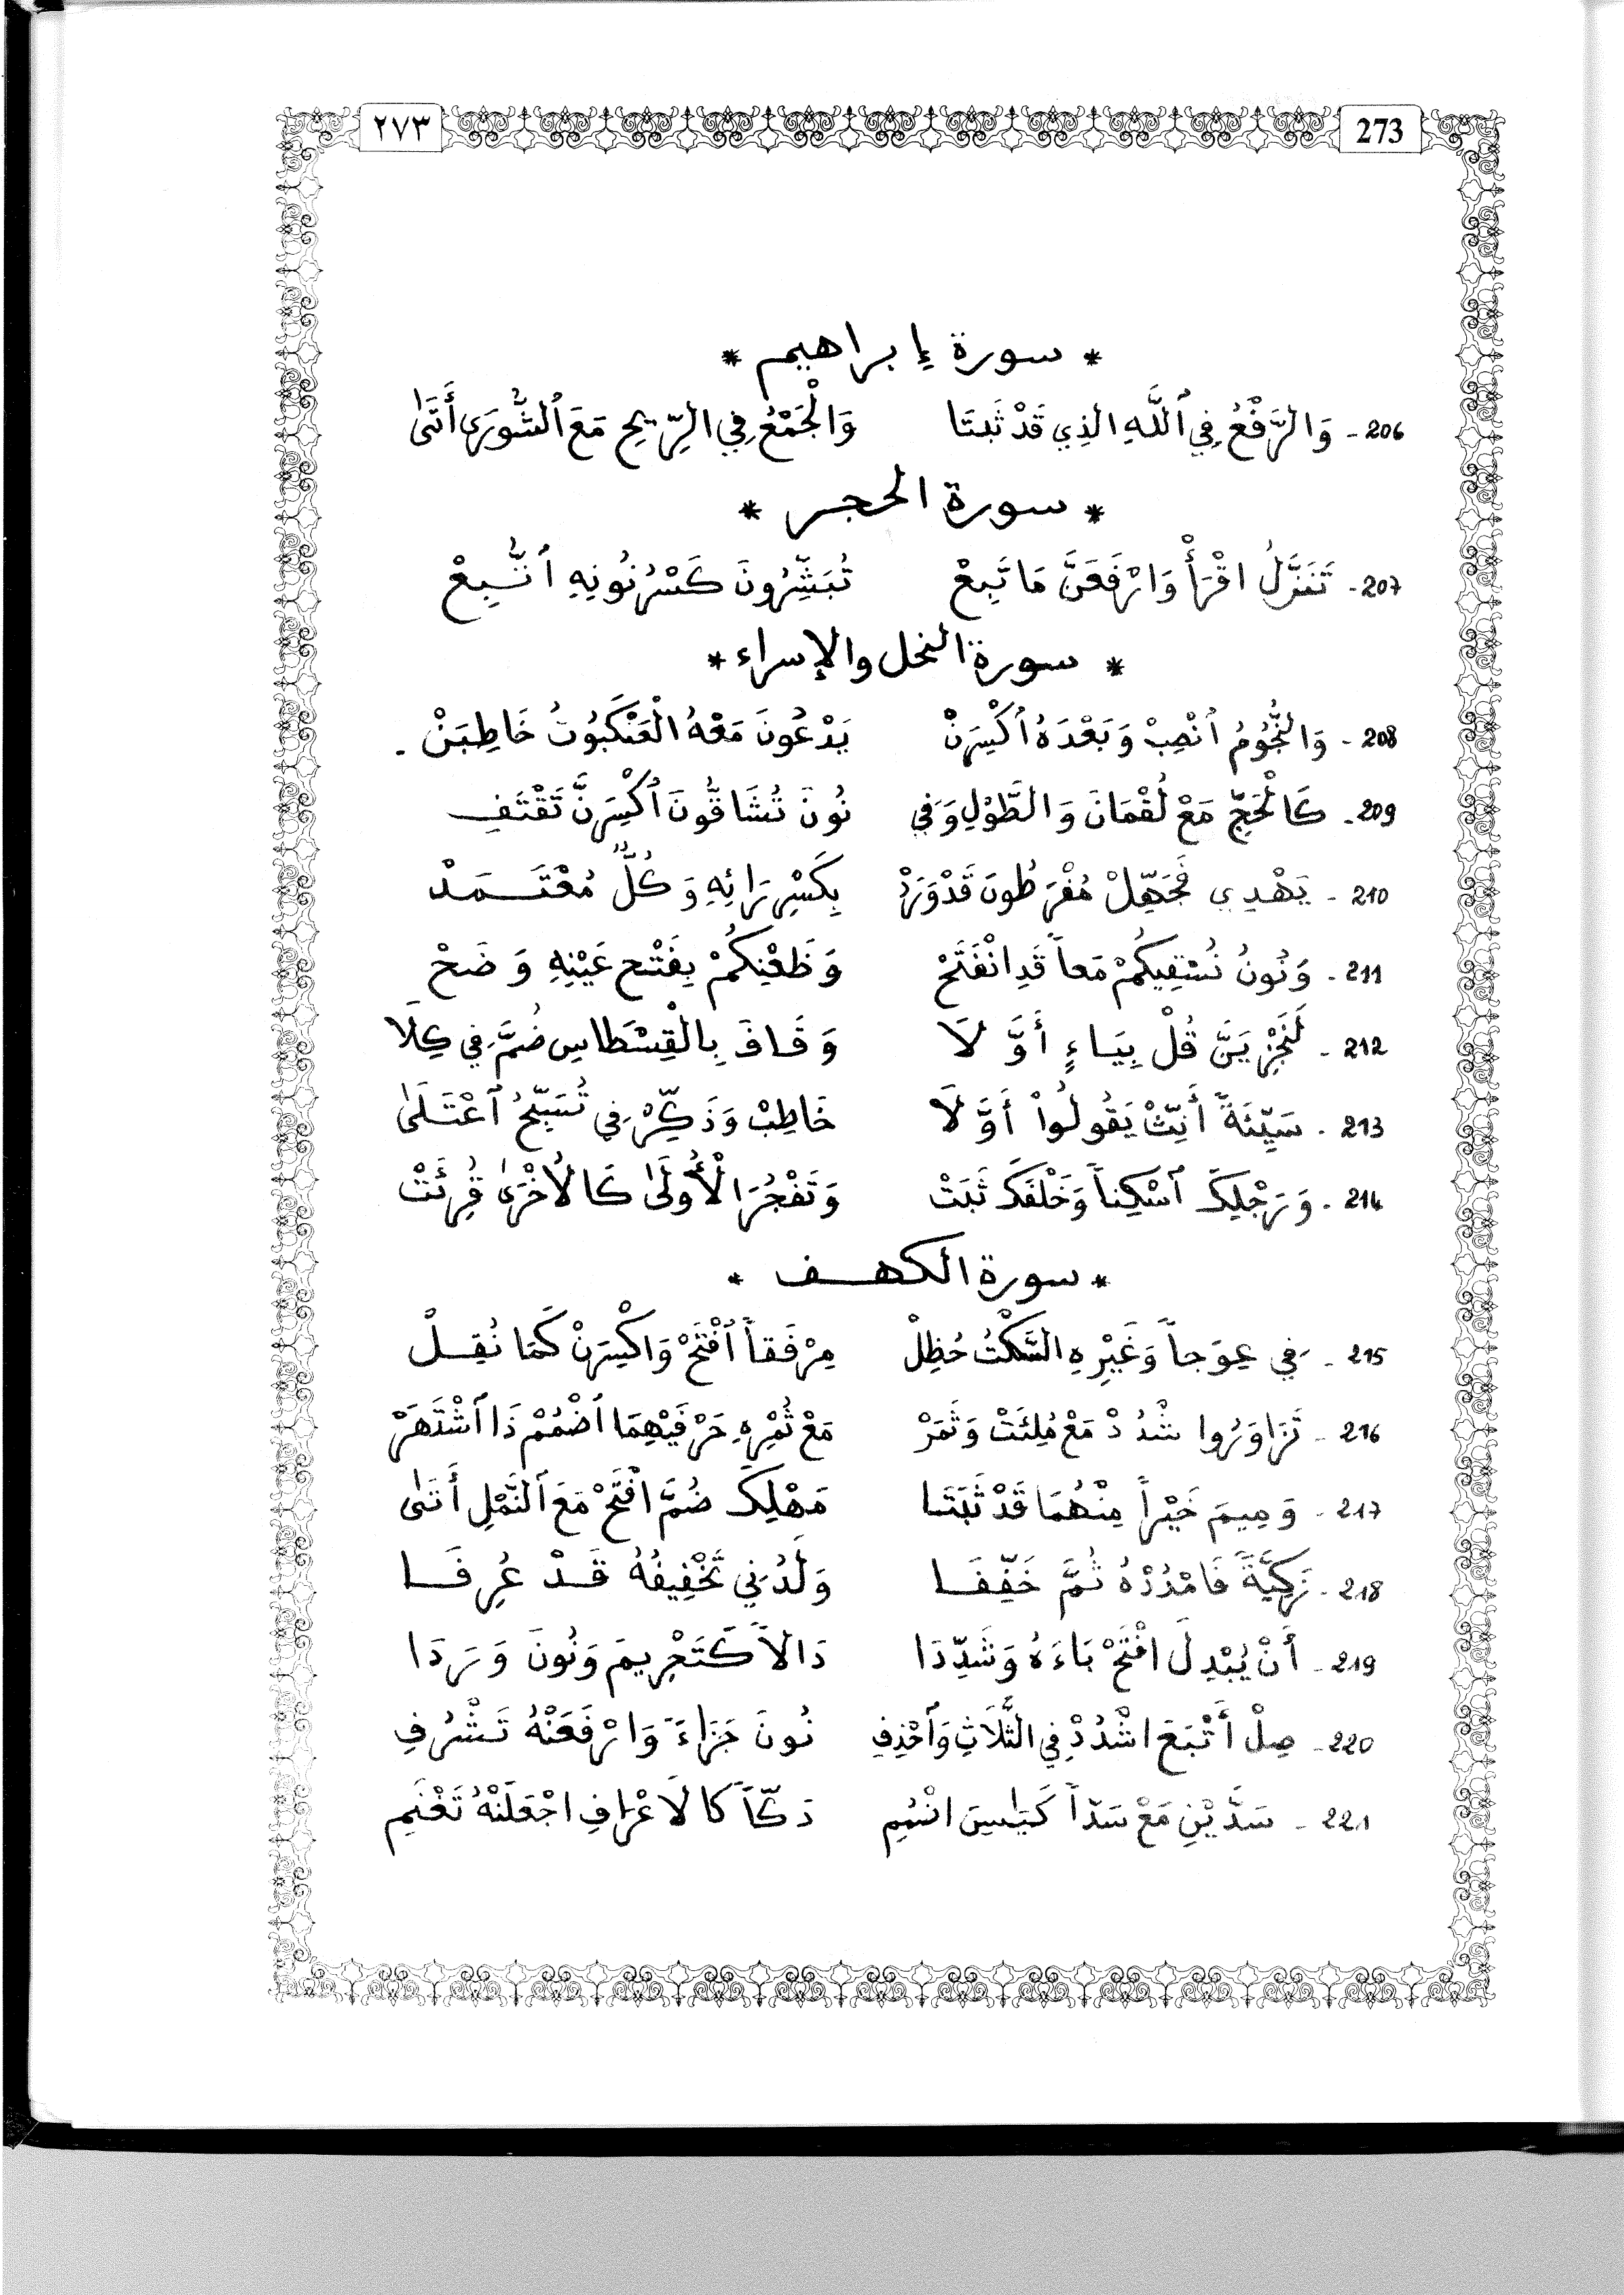 ٢٧٣ 273
* سورة إبراهيم *
206 - وَالرَّفْعُ فِي ٱللَّهِ الذِي قَدْ ثَبتَا وَالْجَمْعُ فِي الرِّيحِ مَعَ ٱلشُّورَى أَتَىٰ
* سورة الحجر *
207 - تَنَزَّلُ اقْرَأْ وَارْفَعَنَّ مَا تَبِعْ تُبَشِّرُونَ كَسْرُ نُونِهِ ٱتُّبِعْ
* سورة النحل والإسراء *
208 - وَالنُّجُومُ ٱنْصِبْ وَبَعْدَهُ ٱكْسِرَنْ يَدْعُونَ مَعْهُ الْعَنْكَبُوتُ خَاطِبَنْ .
209 - كَالْحَجِّ مَعْ لُقْمَانَ وَالطَّوْلِ وَفِي نُونَ تُشَاقُّونَ ٱكْسِرَنَّ تَقْتَفِ
210 - يَهْدِي فَجَهِّلْ مُفْرَطُونَ قَدْ وَرَدْ بِكَسْرِ رَائِهِ وَكُلٌّ مُعْتَمَدْ
211 - وَنُونُ نُسْقِيكُمْ مَعاً قَدِ انْفَتَحْ وَظَعْنِكُمْ بِفَتْحِ عَيْنِهِ وَضَحْ
212 - لَنَجْزِيَنَّ قُلْ بِيَاءٍ أَوَّلَا وَقَافَ بِالْقِسْطَاسِ ضُمَّ فِي كِلَا
213 - سَيِّئَةً أَنِّثْ يَقُولُواْ أَوَّلَا خَاطِبْ وَذَكِّرْ فِي تُسَبِّحُ ٱعْتَلَىٰ
214 - وَرَجْلِكَ ٱسْكِناً وَخَلْفَكَ ثَبَتْ وَتَفْجُرَ الْأُولَىٰ كَالْأُخْرَىٰ قُرِئَتْ
* سورة الكهف *
215 - فِي عِوَجاً وَغَيْرِهِ السَّكْتُ حُظِلْ مِرْفَقاً ٱفْتَحْ وَاكْسِرَنْ كَمَا نُقِلْ
216 - تَزَاوَرُوا شْدُدْ مَعْ مُلِئَتْ وَثَمَرْ مَعْ ثُمْرِهِ حَرْفَيْهِمَا ٱضْمُمْ ذَا ٱشْتَهَرْ
217 - وَمِيمَ خَيْراً مِنْهُمَا قَدْ ثَبَتَا مَهْلِكَ ضُمَّ افْتَحْ مَعَ ٱلنَّمْلِ أَتَىٰ
218 - زَكِيَّةً فَامْدُدْهُ ثُمَّ خَفِّفَا وَلَدُنِي تَخْفِيفُهُ قَدْ عُرِفَا
219 - أَنْ يُبْدِلَ افْتَحْ بَاءَهُ وَشَدِّدَا دَالاً كَتَحْرِيمَ وَنُونَ وَرَدَا
220 - صِلْ أَتْبَعَ اشْدُدْ فِي الثَّلَاثِ وَٱحْذِفِ نُونَ جَزَاءَ وَارْفَعَنْهُ تَشْرُفِ
221 - سَدَّيْنِ مَعْ سَدّاً كَيَاسِينَ انْتُمِ دَكّاً كَالَاعْرَافِ اجْعَلَنْهُ تَغْنَمِ